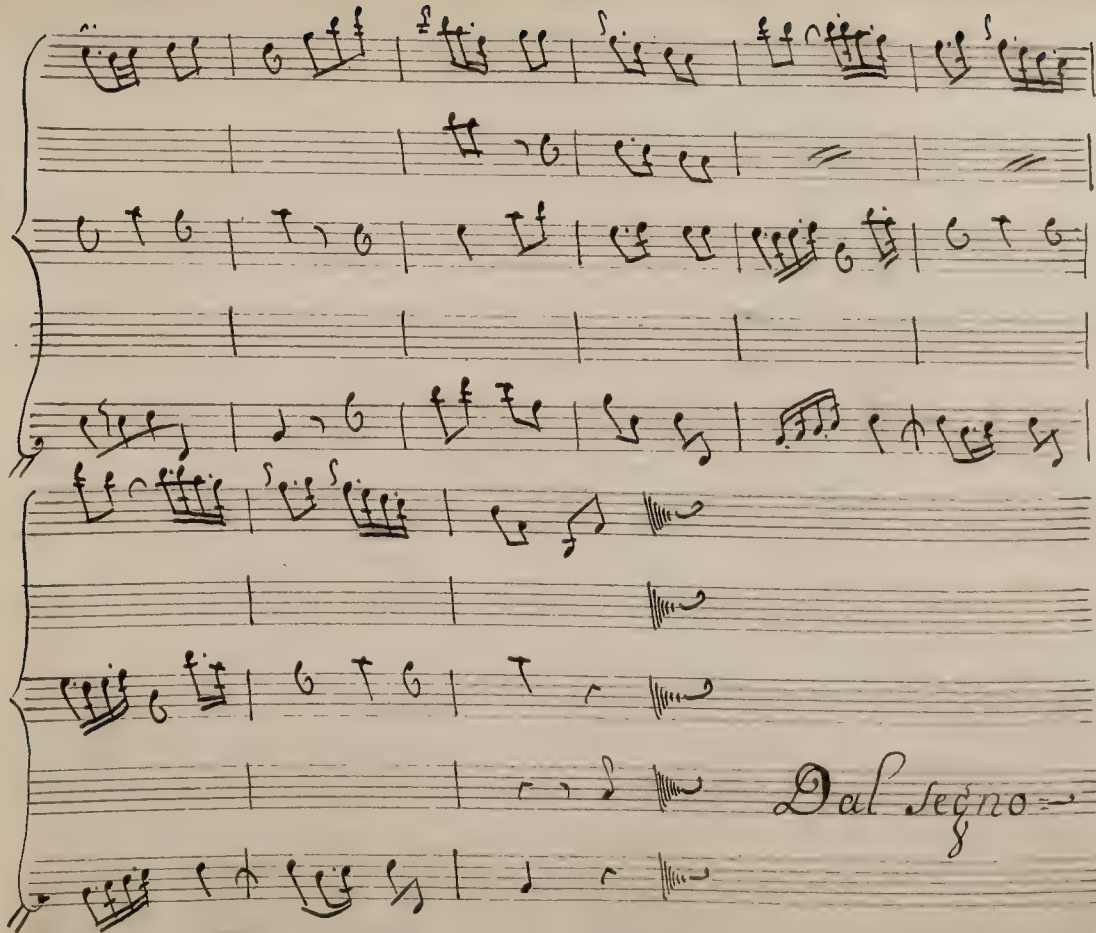 Dal segno